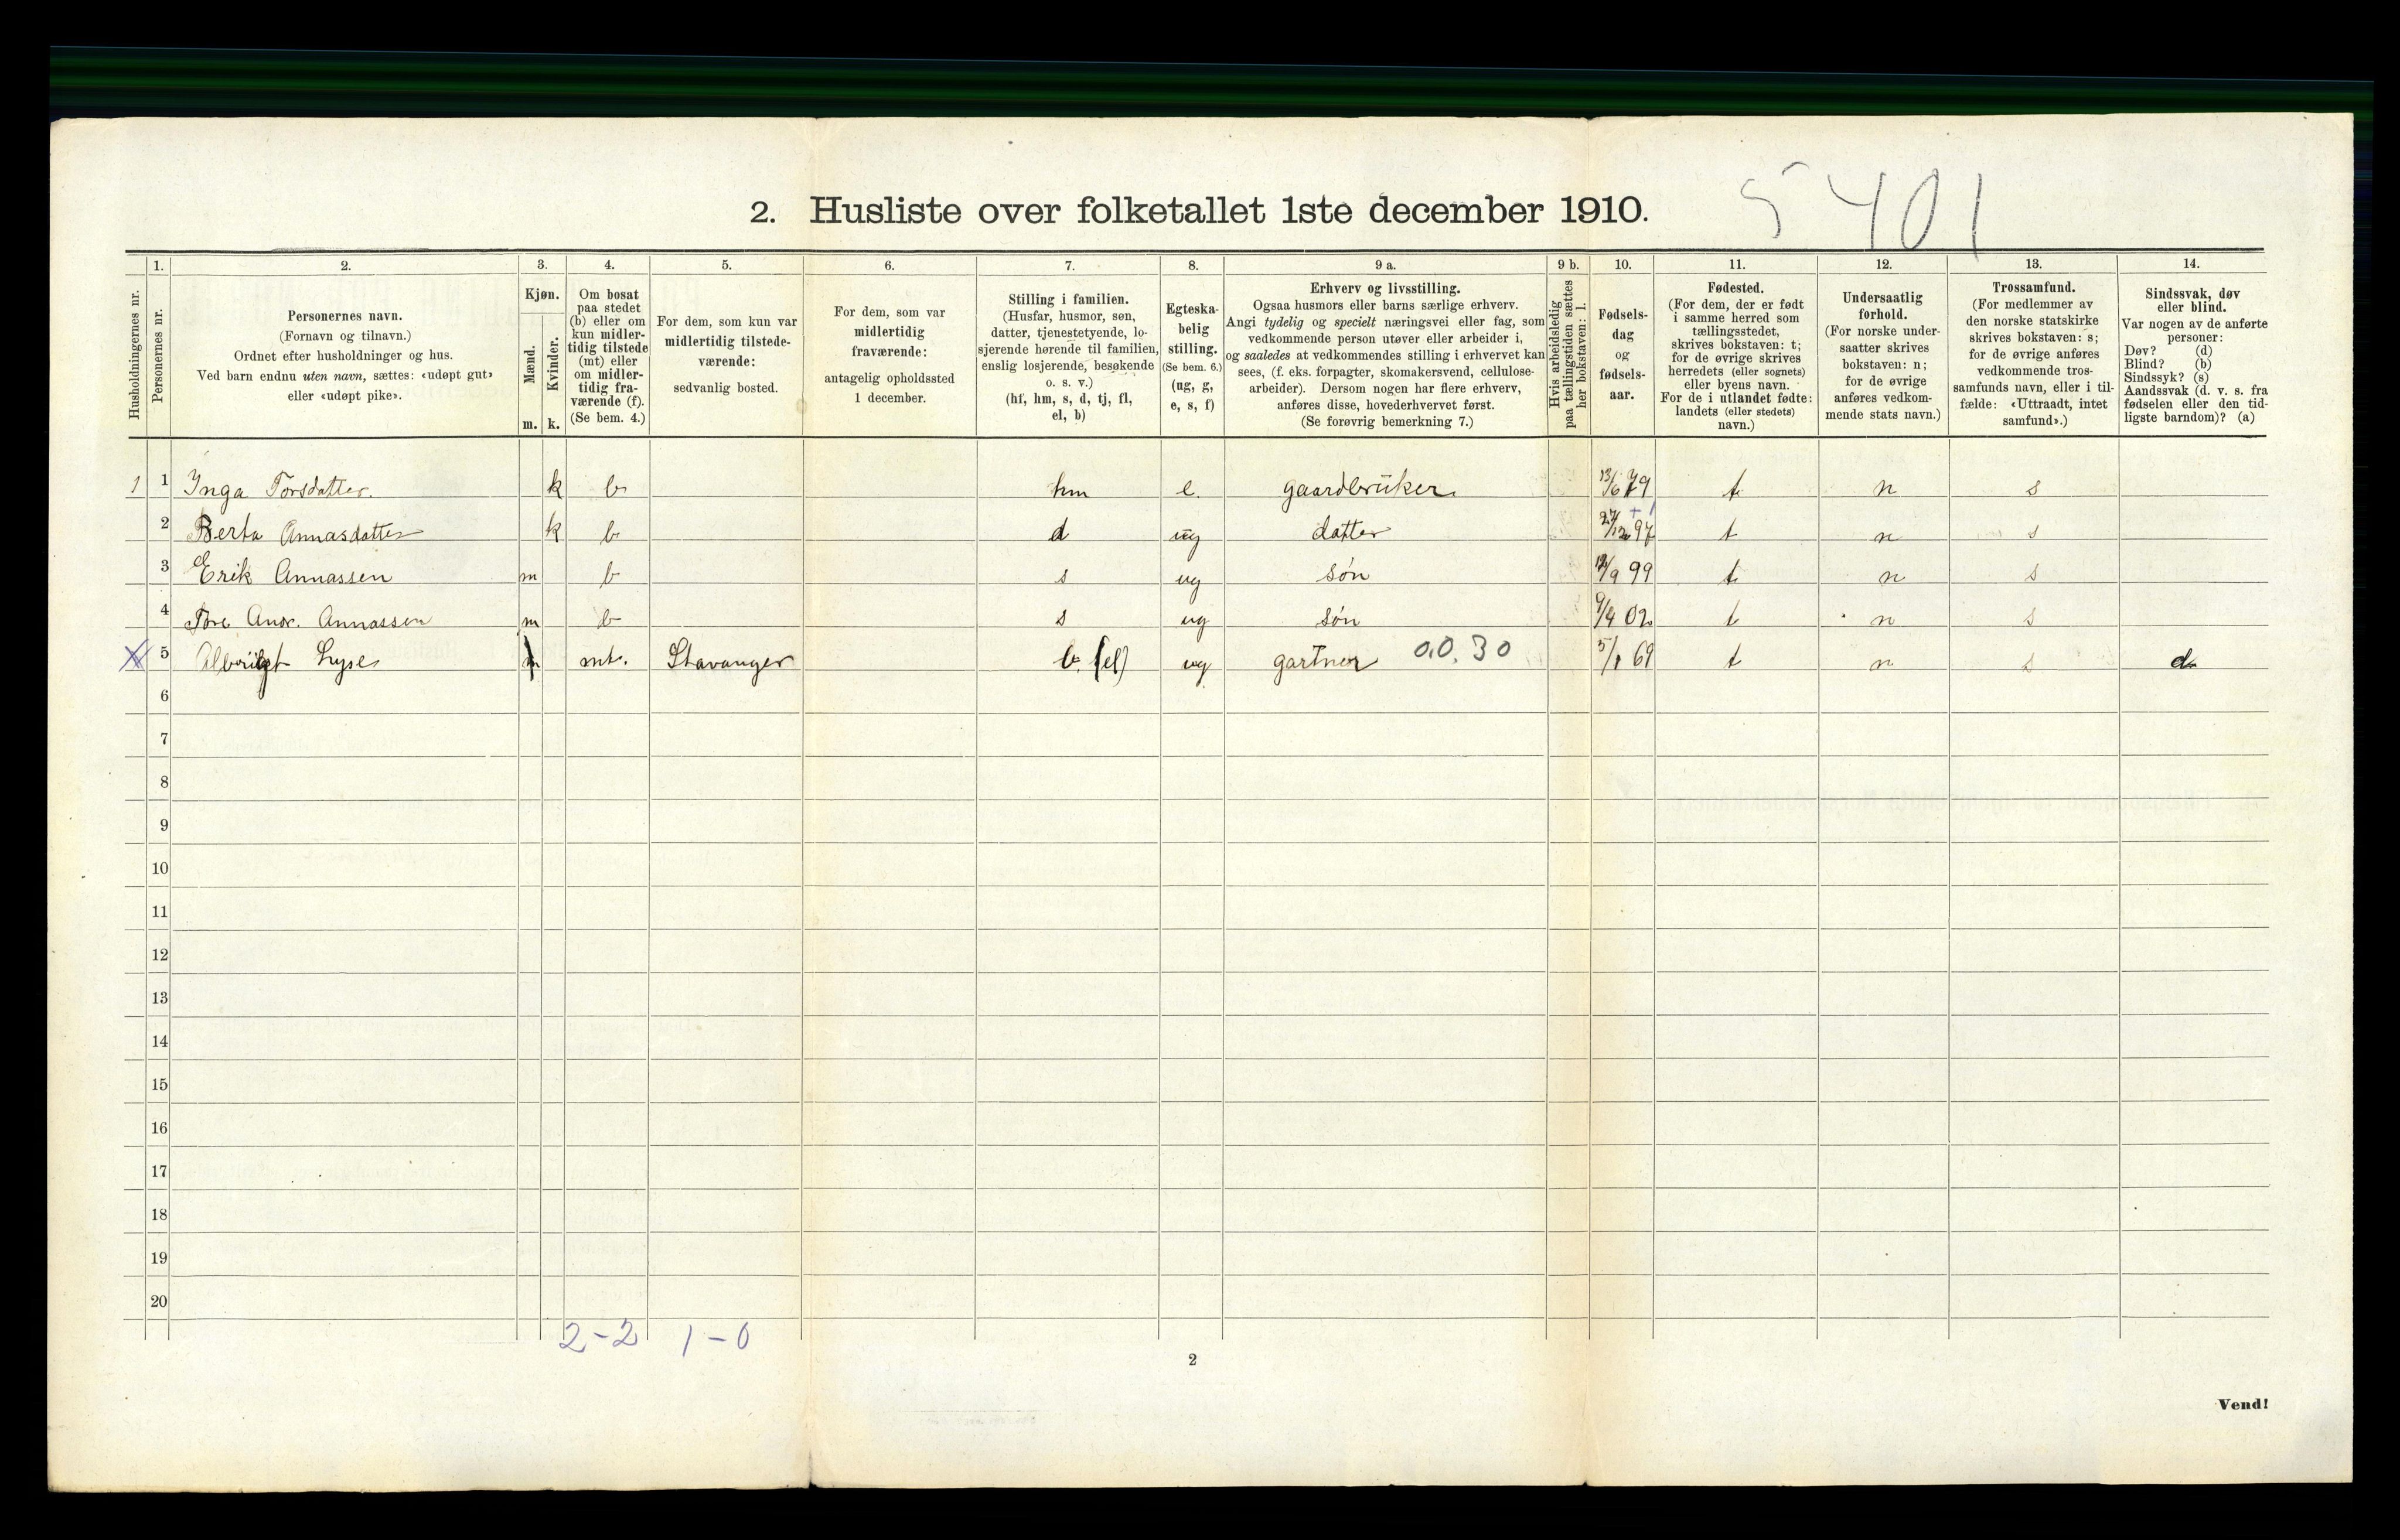 5401
2. Husliste over folketallet 1ste december 1910.
Husholdningernes nr.
1.
Personernes nr.
2.
Personernes navn.
(Fornavn og tilnavn.)
Ordnet efter husholdninger og hus.
Ved barn endnu uten navn, sættes: «udøpt gut»
eller «udøpt pike».
3.
Kjøn.
Mænd.
Kvinder.
m. k.
4.
Om bosat
paa stedet
(b) eller om
kun midler-
tidig tilstede
(mt) eller
om midler-
tidig fra-
værende (f).
(Se bem. 4.)
5.
For dem, som kun var
midlertidig tilstede-
værende:
sedvanlig bosted.
6.
For dem, som var
midlertidig
fraværende:
antagelig opholdssted
1 december.
7.
Stilling i familien.
(Husfar, husmor, søn,
datter, tjenestetyende, lo-
sjerende hørende til familien,
enslig losjerende, besøkende
o. s. v.)
(hf, hm, s, d, tj, fl,
el, b)
8.
Egteska-
belig
stilling.
(Se bem. 6.)
(ug, g,
e, s, f)
9 a.
Erhverv og livsstilling.
Ogsaa husmors eller barns særlige erhverv.
Angi tydelig og specielt næringsvei eller fag, som
vedkommende person utøver eller arbeider i,
og saaledes at vedkommendes stilling i erhvervet kan
sees, (f. eks. forpagter, skomakersvend, cellulose-
arbeider). Dersom nogen har flere erhverv,
anføres disse, hovederhvervet først.
(Se forøvrig bemerkning 7.)
9 b.
Hvis arbeidsledig
paa tællingstiden sættes
her bokstaven: l.
10.
Fødsels-
dag
og
fødsels-
aar.
11.
Fødested.
(For dem, der er født
i samme herred som
tællingsstedet,
skrives bokstaven: t;
for de øvrige skrives
herredets (eller sognets)
eller byens navn.
For de i utlandet fødte:
landets (eller stedets)
navn.)
12.
Undersaatlig
forhold.
(For norske under-
saatter skrives
bokstaven: n;
for de øvrige
anføres vedkom-
mende stats navn.)
13.
Trossamfund.
(For medlemmer av
den norske statskirke
skrives bokstaven: s;
for de øvrige anføres
vedkommende tros-
samfunds navn, eller i til-
fælde: «Uttraadt, intet
samfund».)
14.
Sindssvak, døv
eller blind.
Var nogen av de anførte
personer:
Døv? (d)
Blind? (b)
Sindssyk? (s)
Aandssvak (d. v. s. fra
fødselen eller den tid-
ligste barndom)? (a)
1 1 Inga Torsdatter k b hm e. gaardbruker 13/6 79 t n s
2 Berta Annasdatter k b d ug datter 27/12 97 t n s
3 Erik Annassen m b s ug søn /9 99 t n s
4 Tore Andr. Annassen m b s ug søn 9/4 02 t n s
X 5 Lyse m mt. Stavanger b (el) ug gartner 0.0.30 5/1 69 t n s d
6
7
8
9
10
11
12
13
14
15
16
17
18
19
20
2-2 1-0
2
Vend!